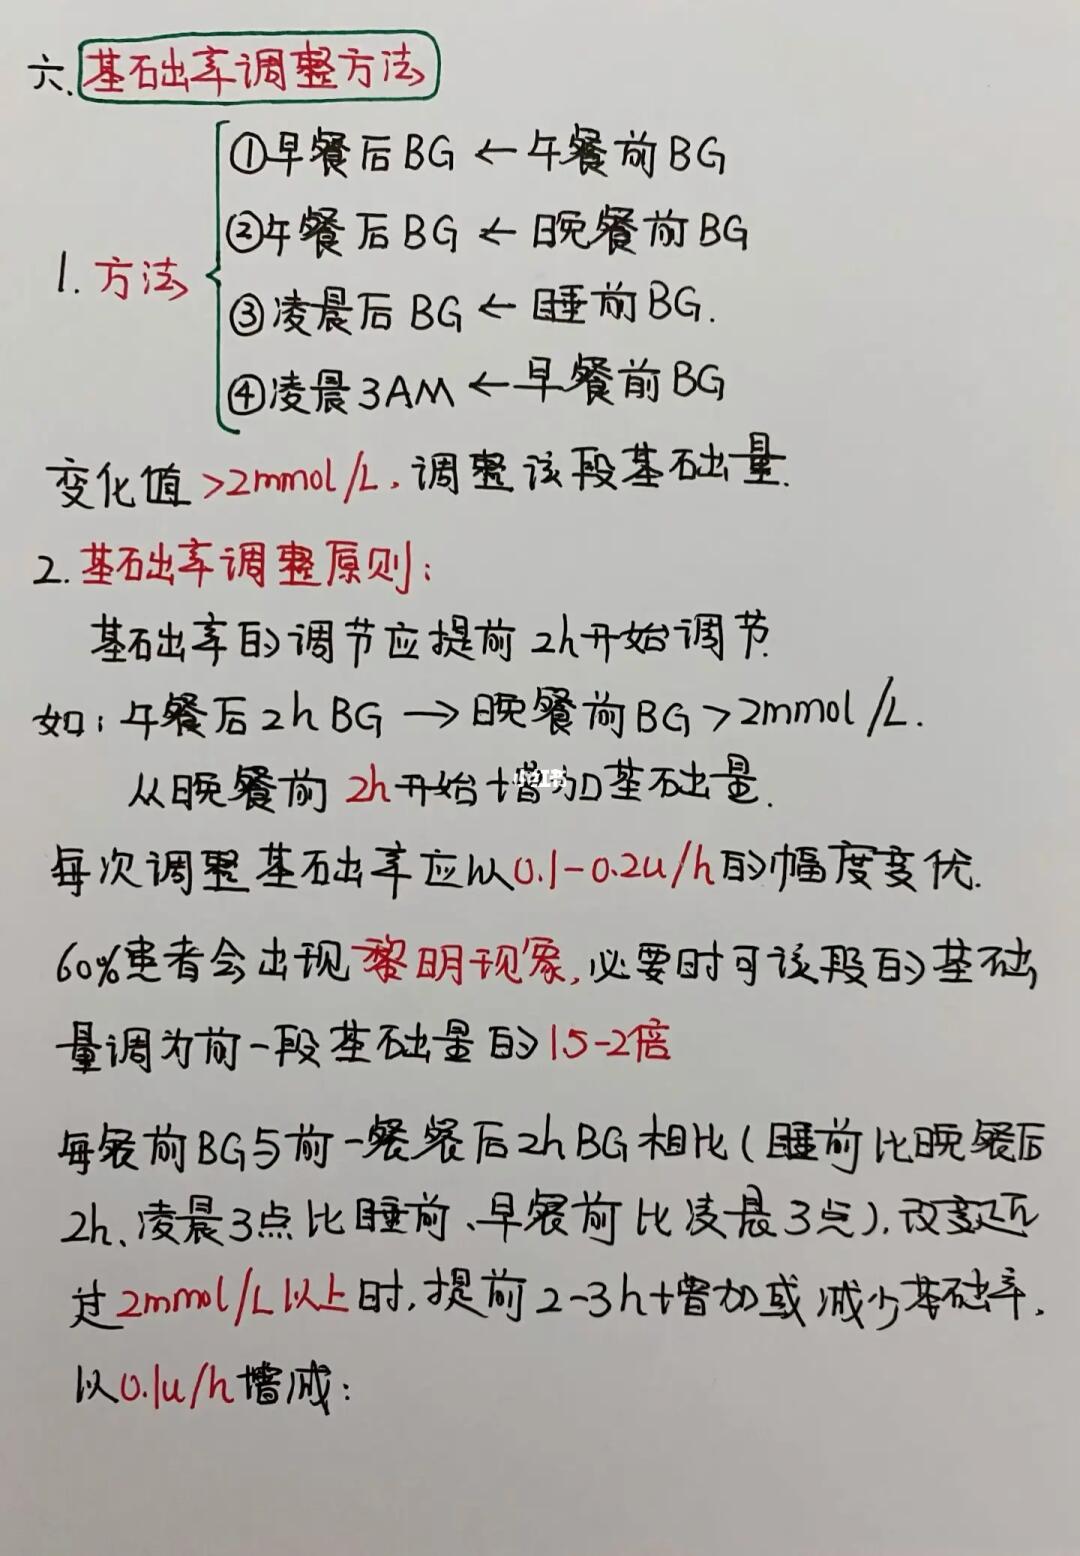 六.基础率调整方法
①早餐后BG←午餐前BG
②午餐后BG←晚餐前BG
1.方法
③凌晨后BG←睡前BG.
④凌晨3AM←早餐前BG
变化值>2mmol/L,调整该段基础量.
2.基础率调整原则:
基础率的调节应提前2h开始调节.
如:午餐后2hBG→晚餐前BG>2mmol/L.
从晚餐前2h开始增加基础量.
小红书
每次调整基础率应以0.1-0.2u/h的幅度变优.
60%患者会出现黎明现象,必要时可该段的基础
量调为前一段基础量的15-2倍
每餐前BG与前一餐餐后2hBG相比(睡前比晚餐后
2h、凌晨3点比睡前、早餐前比凌晨3点),改变
过2mmol/L以上时,提前2-3h增加或减少基础率,
以0.1u/h增减: